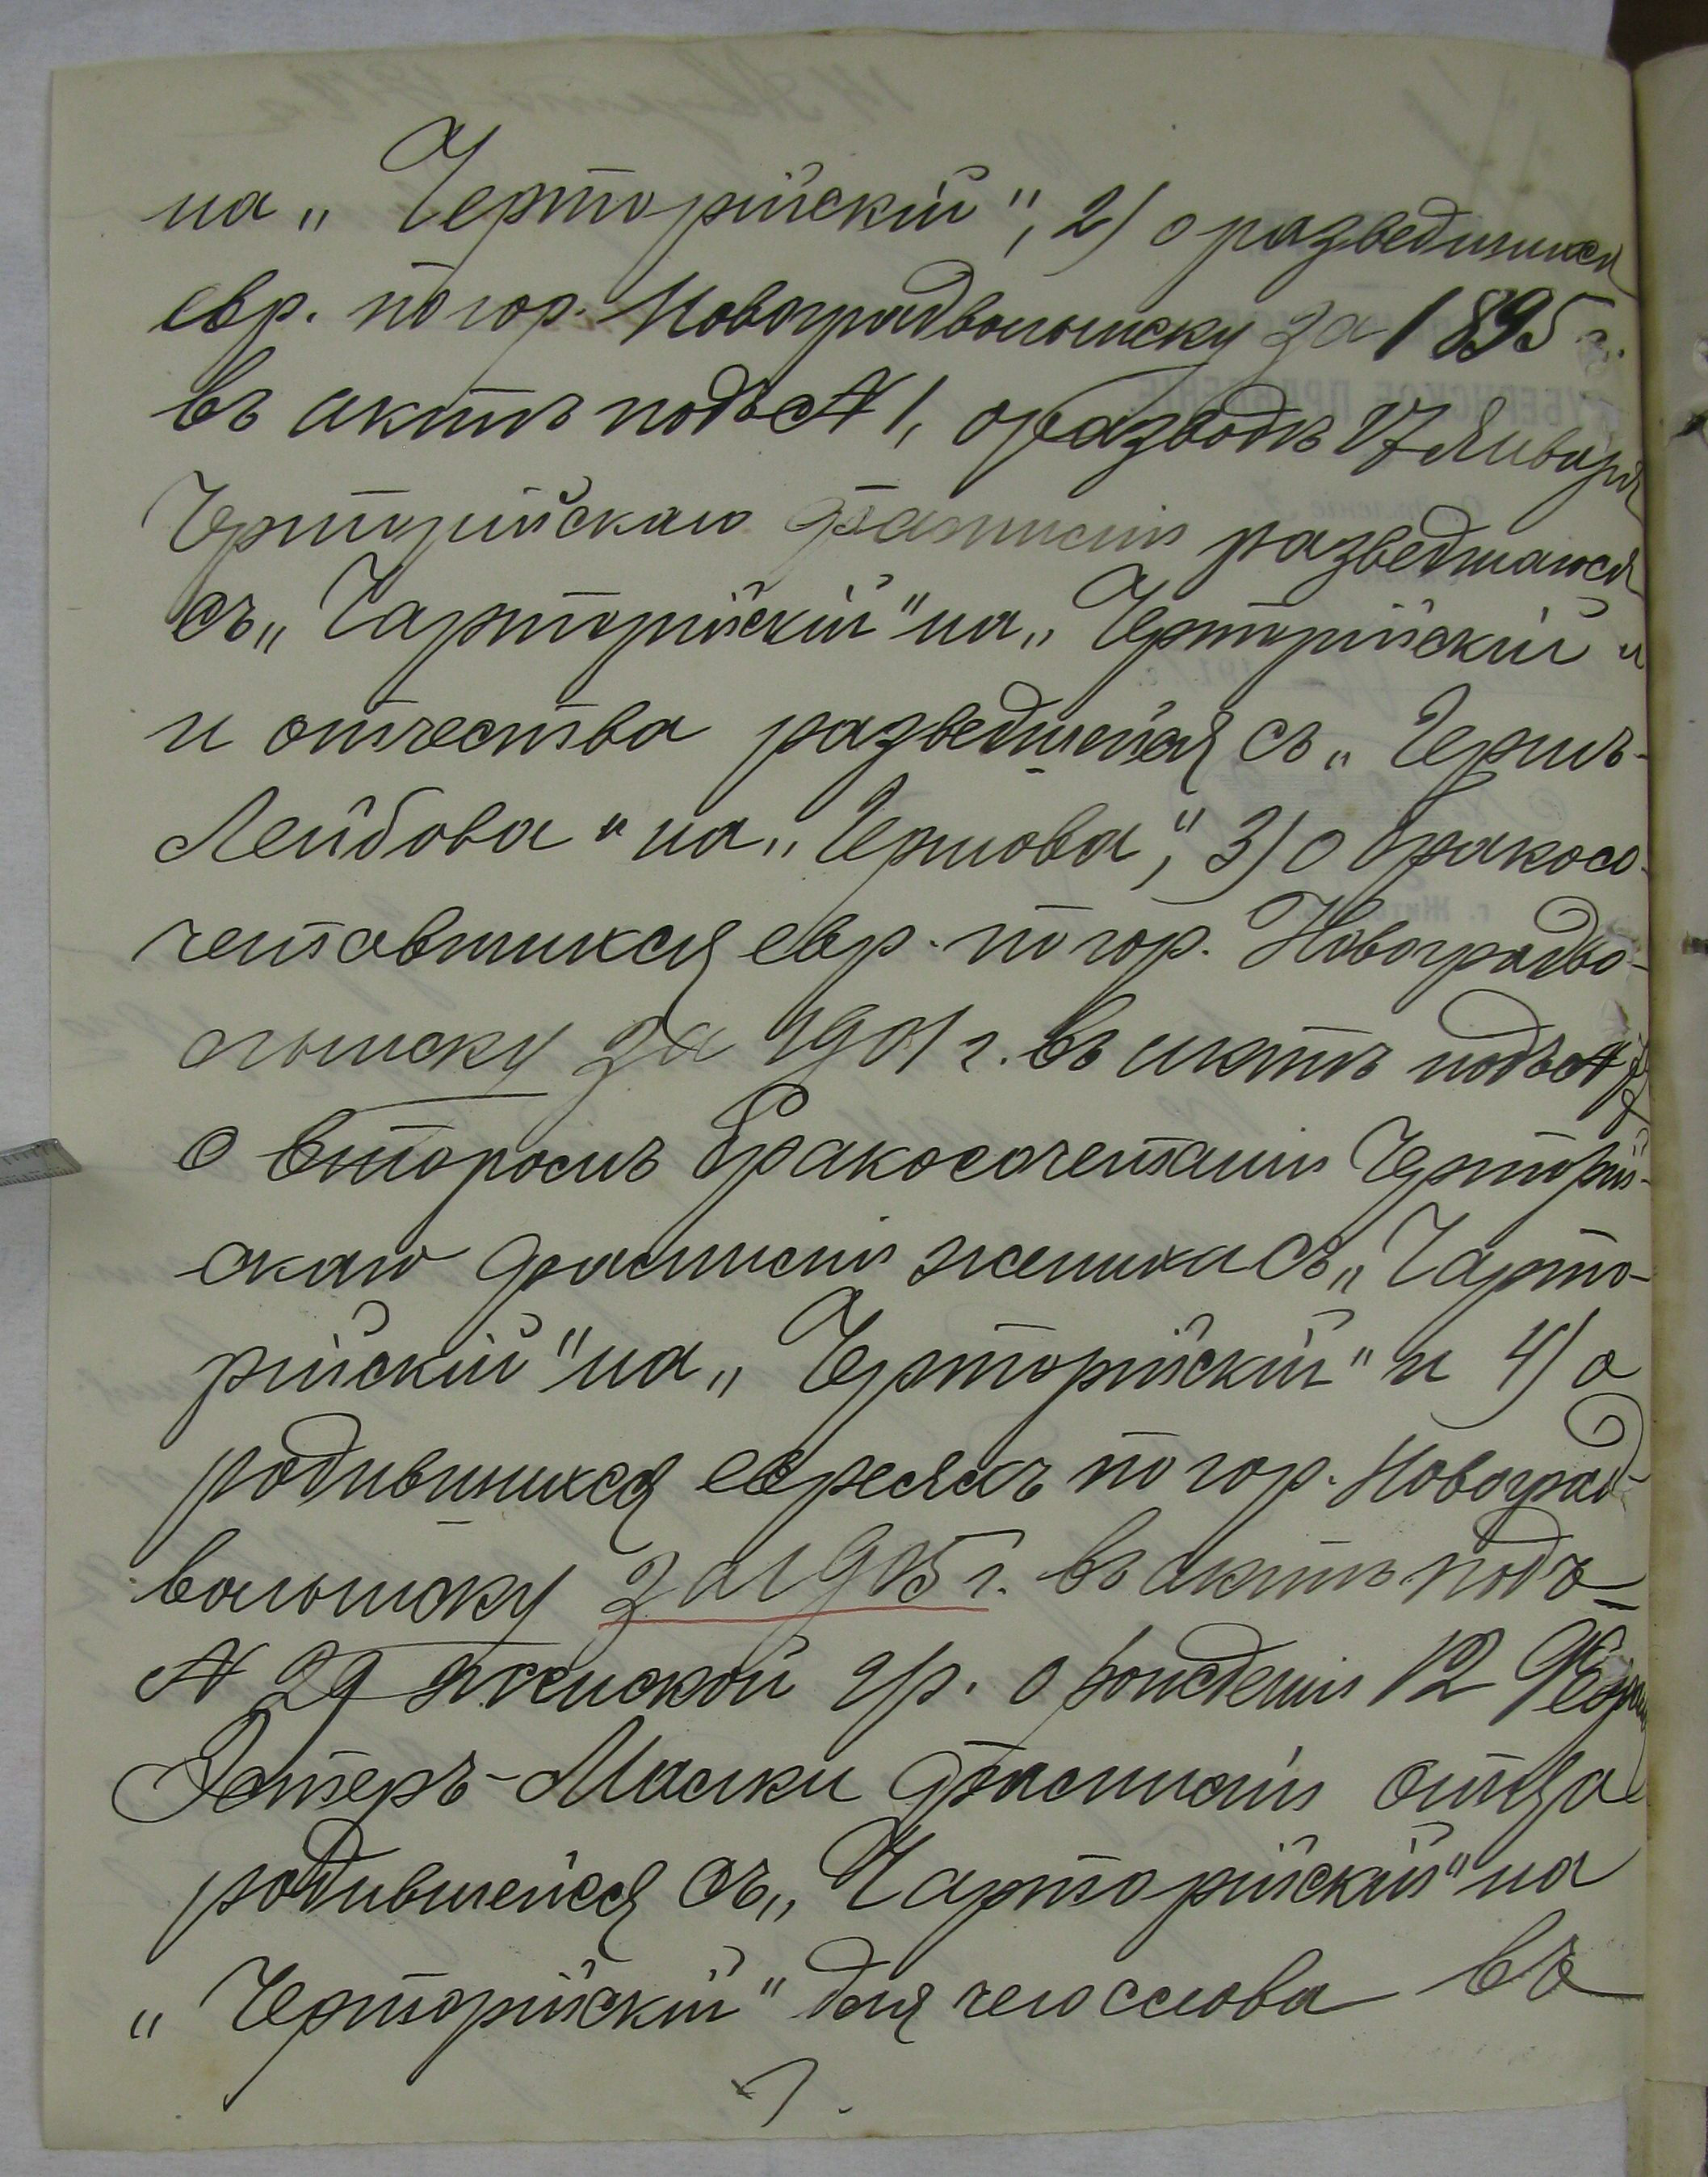 на „Черторійскій", 2) о разведшихся
евр. по гор. Новоградволынску за 1895 г.
въ актѣ подъ № 1, о разводѣ 17 Января
Черторійскаго фамиліи разведшагося
съ „Чарторійскій" на „Черторійскій"
и отчества разведшейся съ „Гершъ-
Лейбова" на „Гершова", 3) о бракосо-
четавшихся евр. по гор. Новоградво-
лынску за 1901 г. въ актѣ подъ №
о второмъ бракосочетаніи Черторій-
скаго фамиліи жениха съ „Чарто-
рійскій" на „Черторійскій" и 4) о
родившихся евреяхъ по гор. Новоград-
волынску за 1905 г. въ актѣ подъ
№ 29 женской гр. о рожденіи 12 Февраля
Эстеръ-Малки фамиліи отца
родившейся съ „Чарторійскій" на
„Черторійскій" для чего слова въ